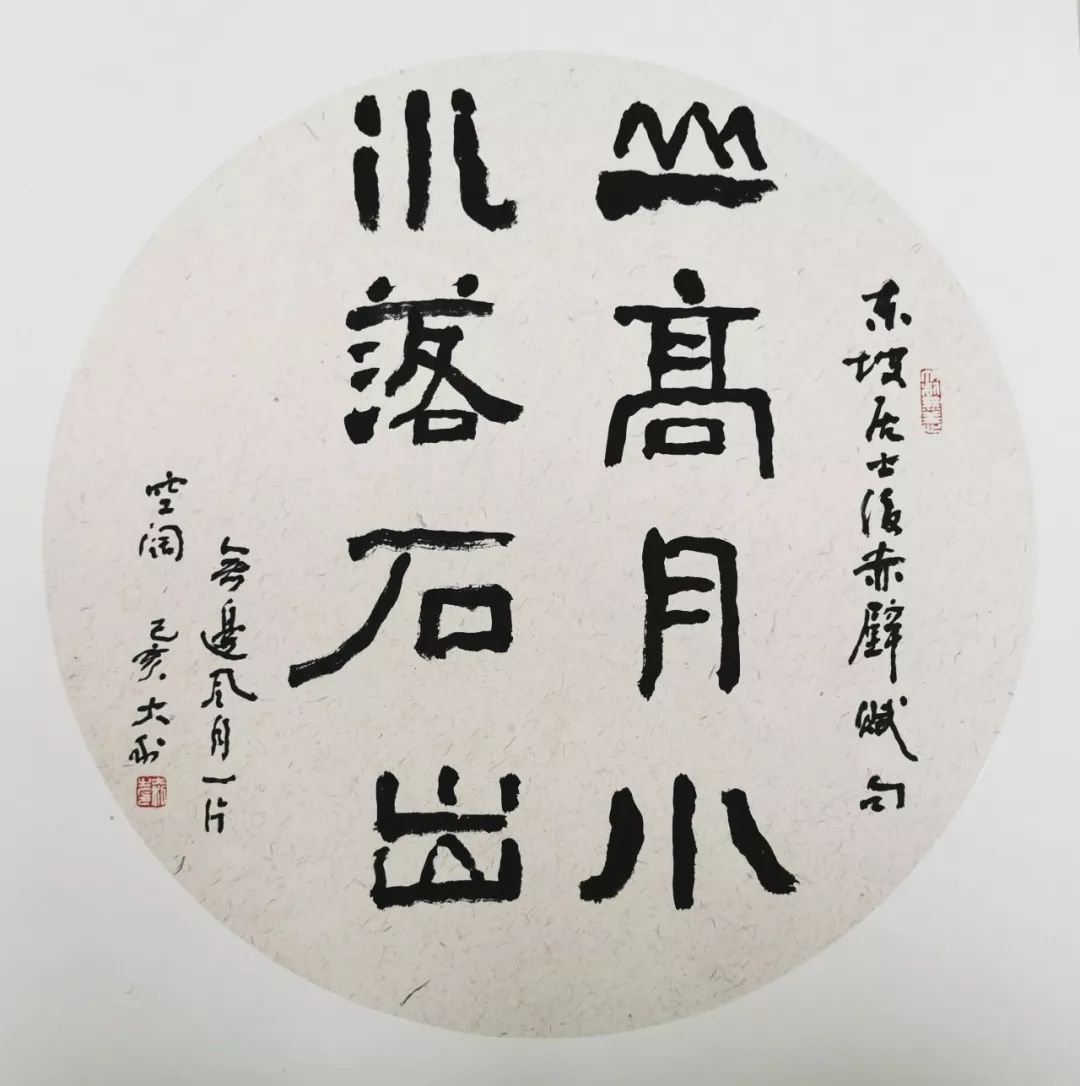 东坡居士後赤壁赋句
山高月小
水落石出
無邊风月一片
空阔 己亥大